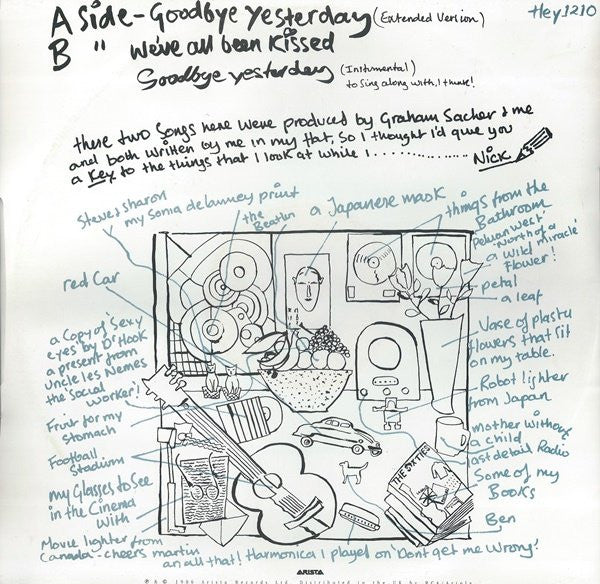 A side - Goodbye yesterday (Extended Version)
Hey 1210
B " We've all been Kissed
Goodbye yesterday (Instrumental)
to Sing along with, I think!
these two Songs here were produced by Graham Sacher & me
and both written by me in my flat, so I thought I'd give you
a Key to the things that I look at while I ..............
Nick
Steve & sharon
my sonia delauney print
the Beatles
a Japanese mask
things from the
Bathroom
Pelican West
'North of a
a wild miracle'
flower!
petal
a leaf
red Car
Vase of plastic
flowers that fit
on my table.
a copy of 'Sexy
eyes' by Dr Hook
a present from
Uncle les Nemes
the Social
Worker!
Robot lighter
from Japan
Fruit for my
stomach
mother without
a child
last detail Radio
Football
Stadium
THE SIXTIES
Some of my
Books
my Glasses to See
in the Cinema
with
Ben
Movie lighter from
Canada - cheers martin
an all that!
Harmonica I played on 'Dont get me Wrong'
ARISTA
℗ & © 1986 Arista Records Ltd. Distributed in the UK by RCA/Ariola.